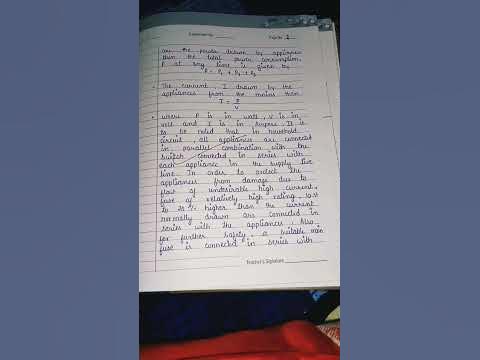 Experiment No.
Page No. 2
are the power drawn by appliances
then the total power consumption
P at any time is given by
P = P1 + P2 + P3
The current I drawn by the
appliances from the mains then
I = P/V
where P is in watt, V is in
volt and I is in Ampere. It is
to be noted that in household
circuit, all appliances are connected
in parallel combination with the
switch connected in series with
each appliance in the supply live
line. In order to protect the
appliances from damage due to
flow of undesirable high current,
fuse of relatively high rating, 10
to 20 % higher than the current
normally drawn are connected in
series with the appliances. Also,
for further safety, a suitable main
fuse is connected in series with
Teacher's Signature